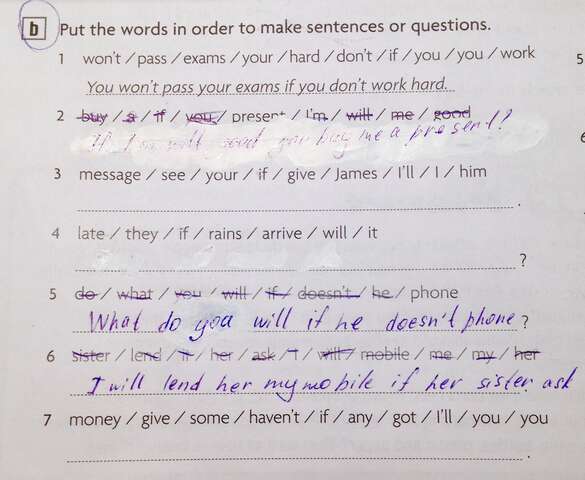 b Put the words in order to make sentences or questions.
5
1 won't / pass / exams / your / hard / don't / if / you / you / work
You won't pass your exams if you don't work hard.
2 buy / a / if / you / present / I'm / will / me / good
buy me a present?
6
3 message / see / your / if / give / James / I'll / I / him
.
4 late / they / if / rains / arrive / will / it
?
5 do / what / you / will / if / doesn't / he / phone
What do you will if he doesn't phone ?
6 sister / lend / if / her / ask / I / will / mobile / me / my / her
I will lend her my mobile if her sister ask
7 money / give / some / haven't / if / any / got / I'll / you / you
.